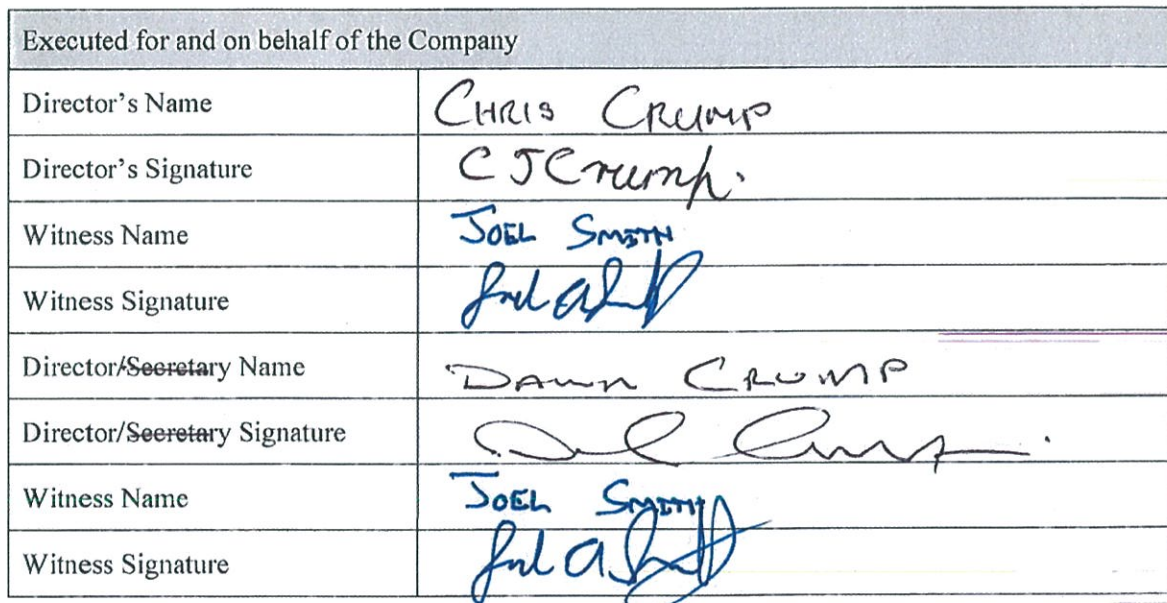 Executed for and on behalf of the Company
Director's Name CHRIS CRUMP
Director's Signature C J Crump.
Witness Name JOEL SMITH
Witness Signature
Director/Secretary Name DAWN CRUMP
Director/Secretary Signature
Witness Name JOEL SMITH
Witness Signature